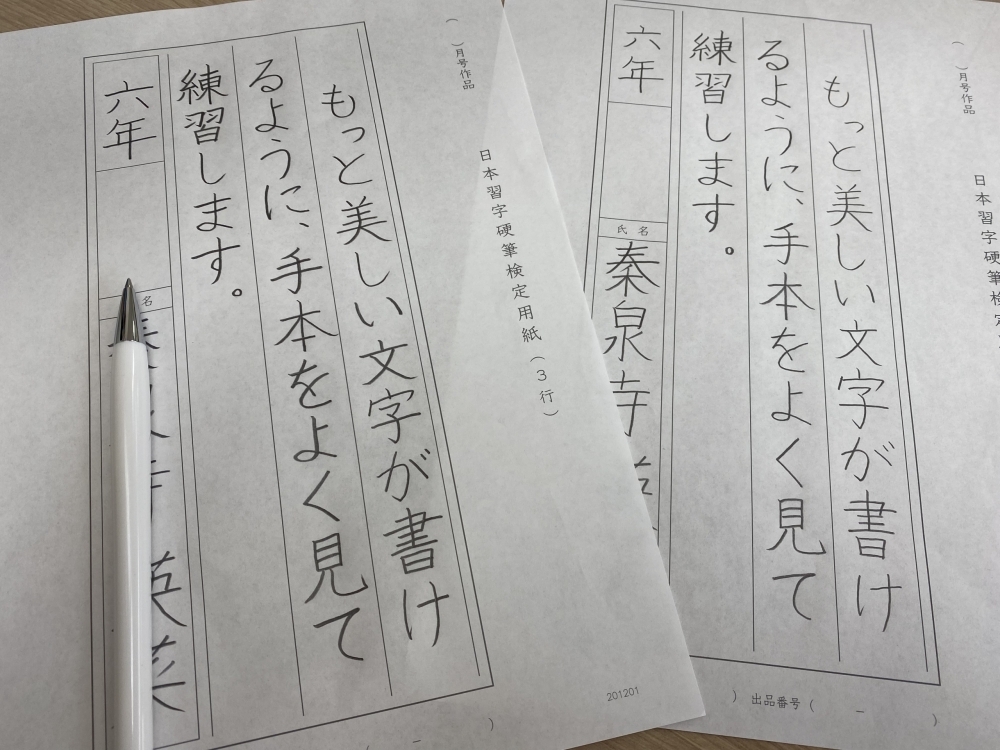 ( )月号作品
日本習字硬筆検定用紙(3行)
もっと美しい文字が書け
るように、手本をよく見て
練習します。
六年
名
英菜
201201
( )月号作品
日本習字硬筆検
もっと美しい文字が書け
るように、手本をよく見て
練習します。
六年
氏名
秦泉寺
出品番号( − )